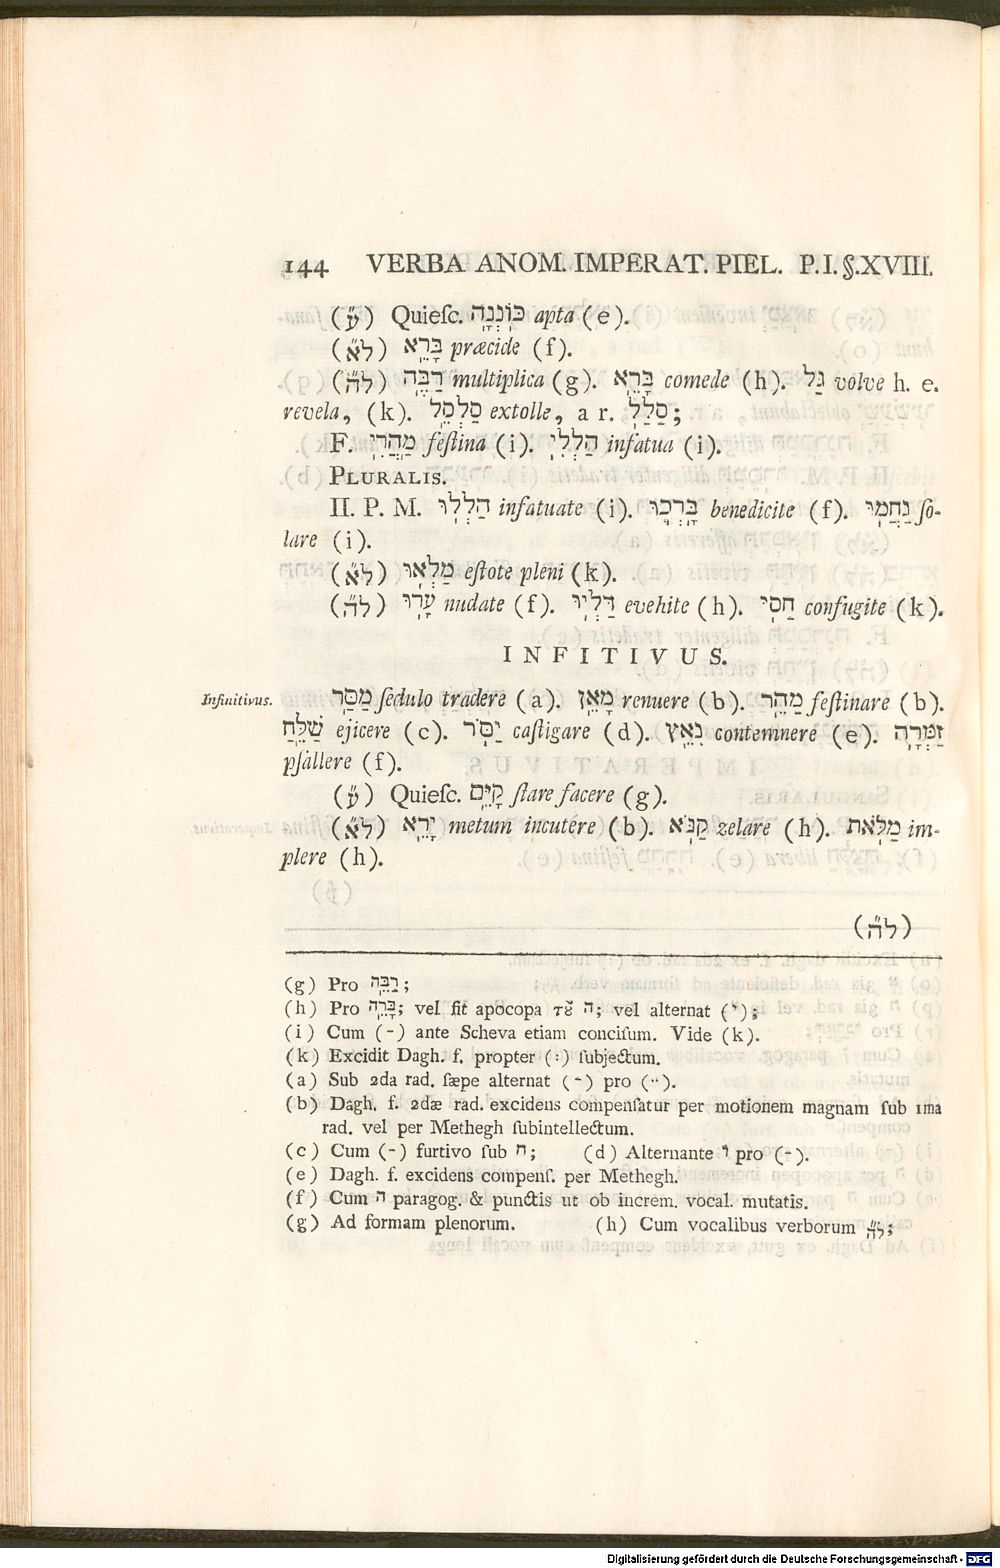 144 VERBA ANOM. IMPERAT. PIEL. P.I.§.XVIII.
(ע״ו) Quieſc. כּוֹנְנָה apta (e).
(לא״) בָּרֵא præcide (f).
(לה״) רַבֶּה multiplica (g). בָּרֵא comede (h). גַּל volve h. e.
revela, (k). סַלְסֵל extolle, a r. סָלַל;
F. מַהֲרִי feſtina (i). הַלְלִי infatua (i).
PLURALIS.
II. P. M. הַלְלוּ infatuate (i). בָּרְכוּ benedicite (f). נַחֲמוּ ſo-
lare (i).
(לא״) מַלְאוּ eſtote pleni (k).
(לה״) עָרוּ nudate (f). דַּלְיוּ evehite (h). חַסִי confugite (k).
INFITIVUS.
Infinitivus. מַסֵּר ſedulo tradere (a). מָאֵן renuere (b). מַהֵר feſtinare (b).
שַׁלֵּחַ ejicere (c). יַסֹּר caſtigare (d). נִאֵץ contemnere (e). זַמְּרָה
pſallere (f).
(ע״ו) Quieſc. קַיֵּם ſtare facere (g).
(לא״) יָרֵא metum incutere (b). קַנֹּא zelare (h). מַלֹּאת im-
plere (h).
(לה״)
(g) Pro רַבֵּה;
(h) Pro בָּרֵה; vel fit apocopa τȣ ה; vel alternat (י);
(i) Cum (-) ante Scheva etiam conciſum. Vide (k).
(k) Excidit Dagh. f. propter (:) ſubjectum.
(a) Sub 2da rad. ſæpe alternat (-) pro (··).
(b) Dagh. f. 2dæ rad. excidens compenſatur per motionem magnam ſub 1ma
rad. vel per Methegh ſubintellectum.
(c) Cum (-) furtivo ſub ח; (d) Alternante ו pro (-).
(e) Dagh. f. excidens compenſ. per Methegh.
(f) Cum ה paragog. & punctis ut ob increm. vocal. mutatis.
(g) Ad formam plenorum. (h) Cum vocalibus verborum לה״;
Digitalisierung gefördert durch die Deutsche Forschungsgemeinschaft - DFG